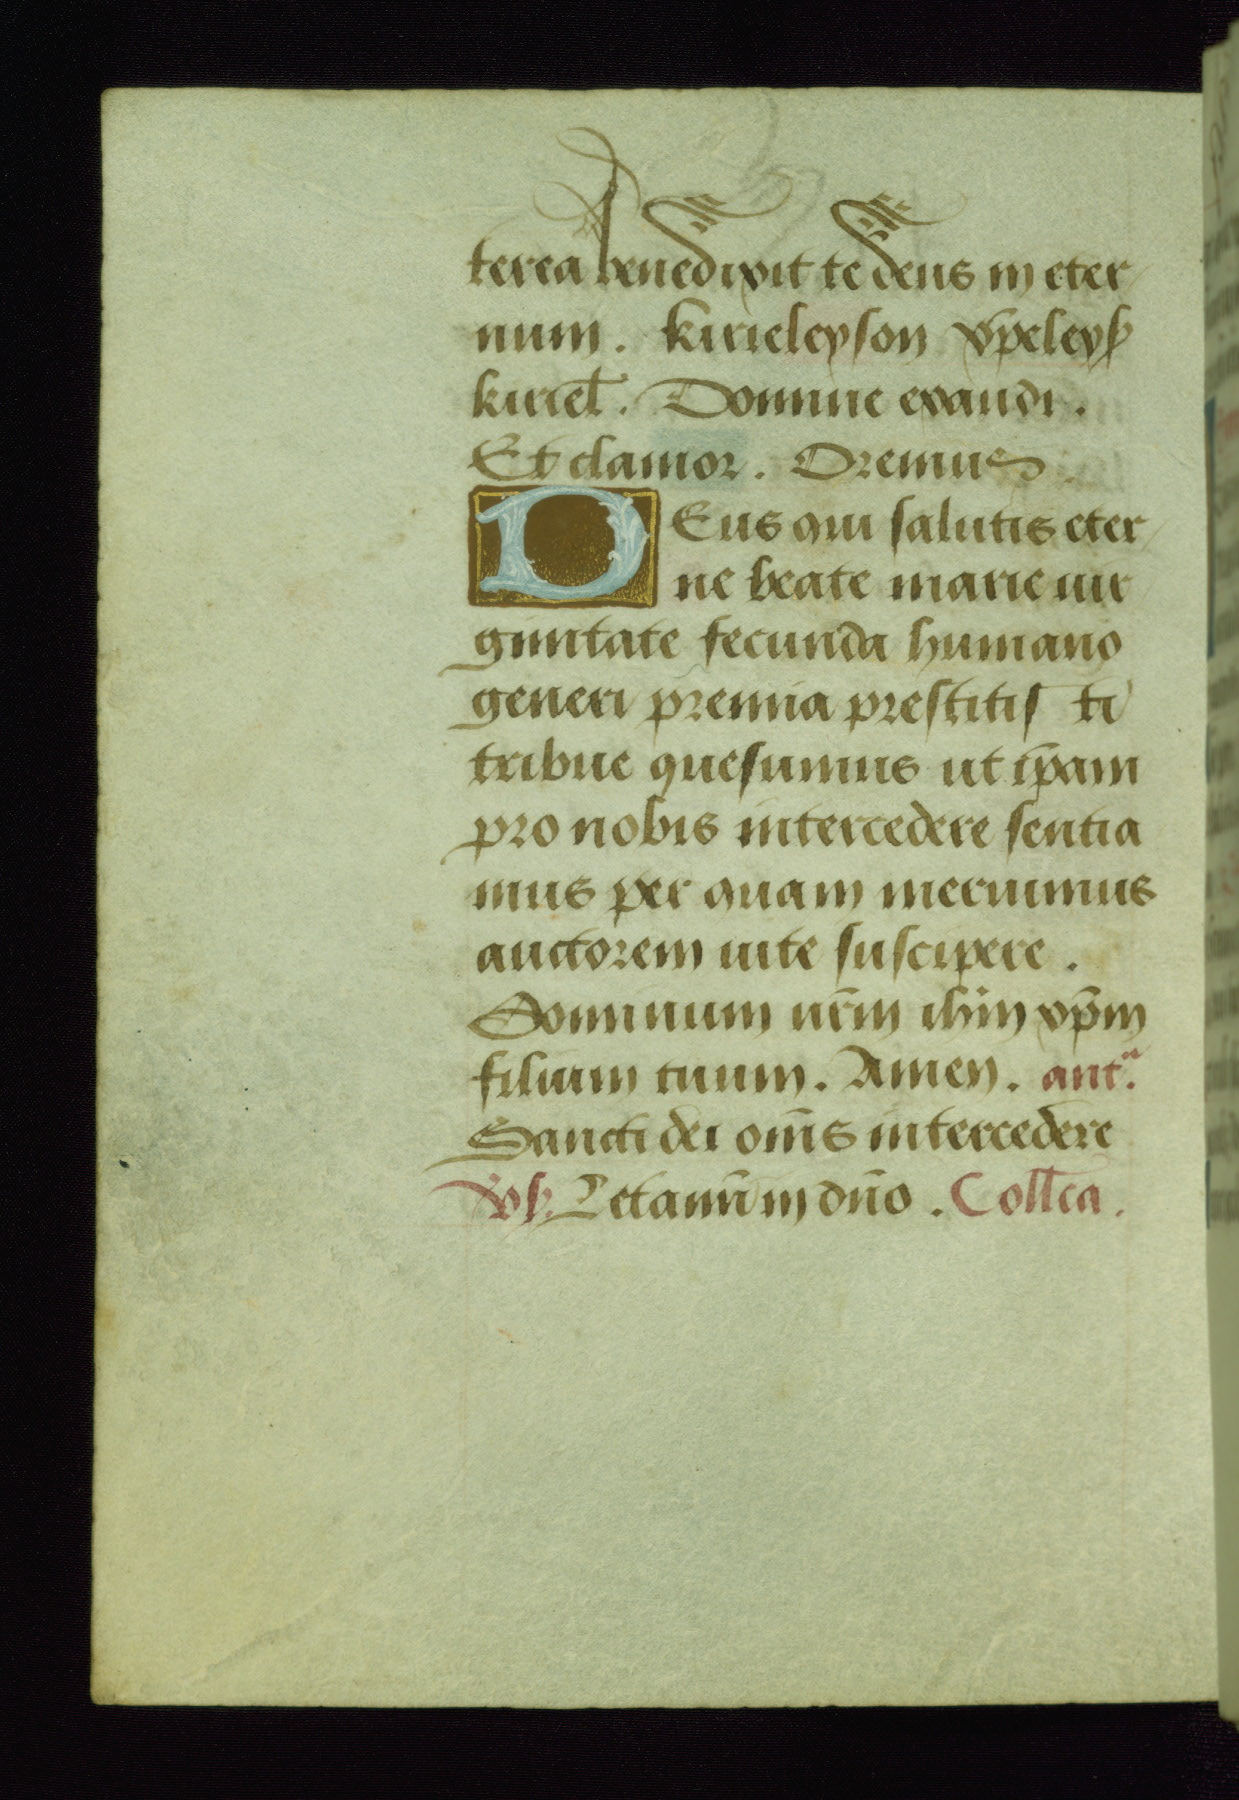 terea benedixit te deus in eter
num. kirieleyson xp̄eleyſ
kiriel̄. Domine exaudi.
Et clamor. Oremus
DEus qui salutis eter
ne beate marie uir
ginitate fecunda humano
generi premia prestitisti
tribue quesumus ut ip̄am
pro nobis intercedere sentia
mus per quam meruimus
auctorem uite suscipere.
Dominum nr̄m ihm̄ xp̄m
filium tuum. Amen. antᵃ.
Sancti dei om̄s intercedere
Letamī in dn̄o. Coll̄ca.